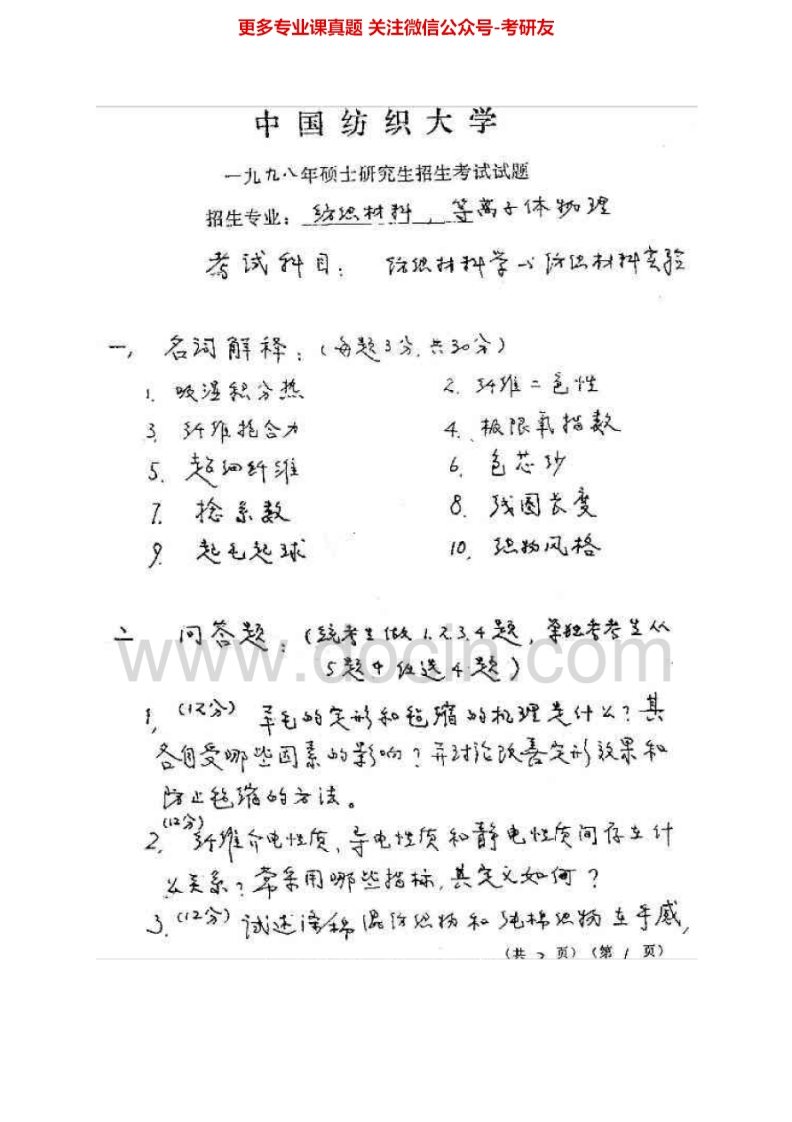 更多专业课真题 关注微信公众号-考研友
中国纺织大学
一九九八年硕士研究生招生考试试题
招生专业：纺织材料，等离子体物理
考试科目： 纺织材料学与纺织材料实验
一，名词解释：（每题3分，共30分）
1. 吸湿积分热 2. 纤维二色性
3. 纤维抱合力 4. 极限氧指数
5. 超细纤维 6. 包芯纱
7. 捻系数 8. 线圈长度
9. 起毛起球 10. 织物风格
二 问答题：（统考生做1.2.3.4题，单独考考生从
5题中任选4题）
www.docin.com
1，（12分）羊毛的定形和毡缩的机理是什么？其
各自受哪些因素的影响？并讨论改善定形效果和
防止毡缩的方法。
（12分）
2，纤维介电性质，导电性质和静电性质间存在什
么关系？常采用哪些指标，其定义如何？
3.（12分）试述涤棉混纺织物和纯棉织物在手感，
（共2页）（第1页）